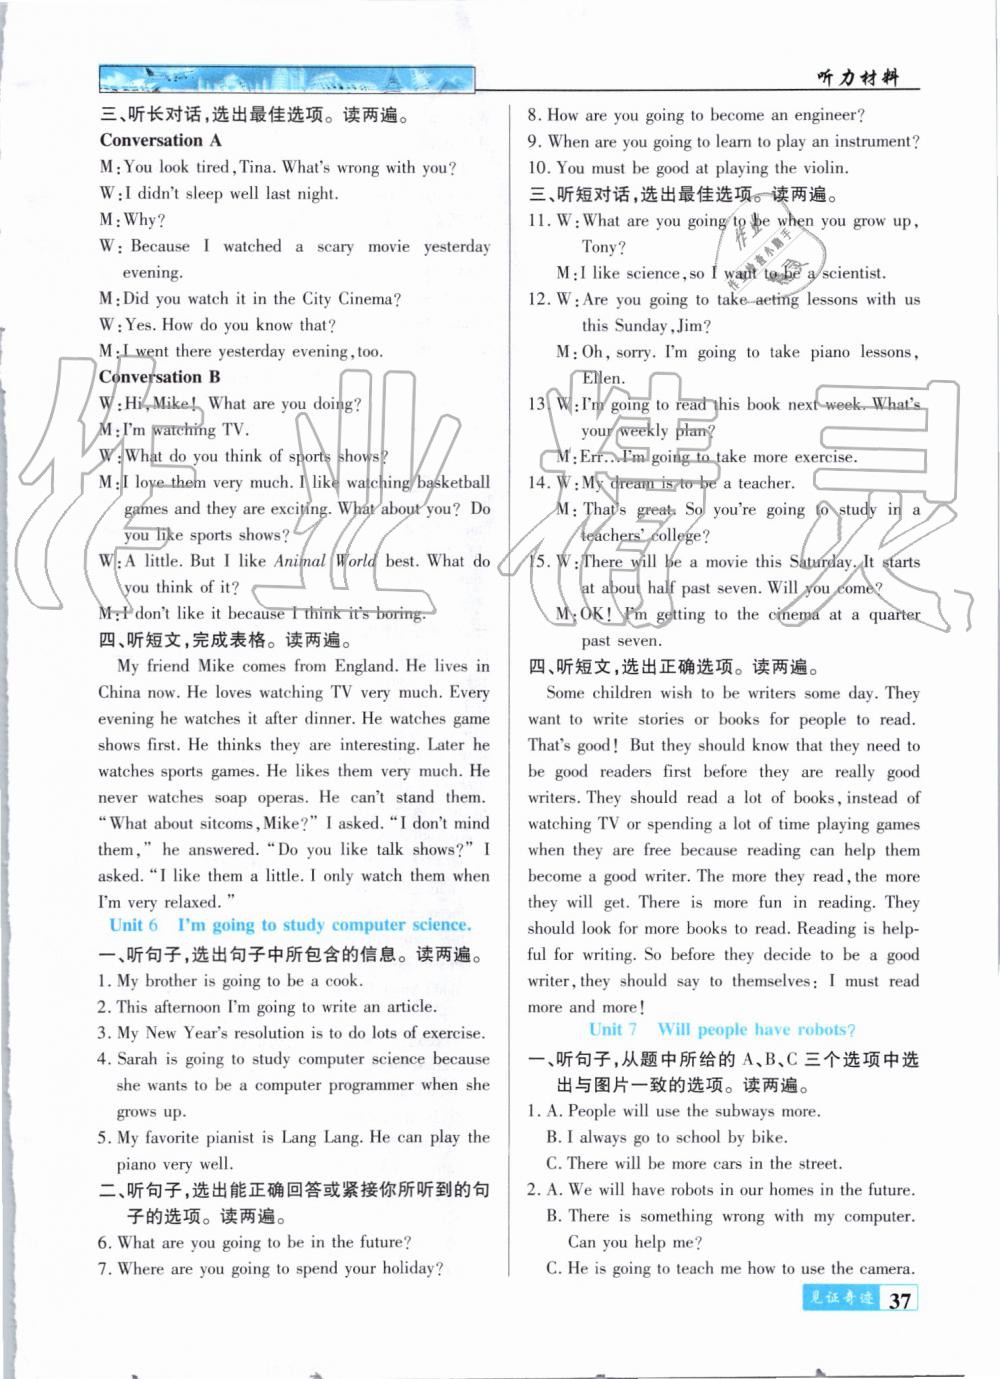 听力材料
三、听长对话,选出最佳选项。读两遍。
Conversation A
M:You look tired,Tina. What's wrong with you?
W:I didn't sleep well last night.
M:Why?
W: Because I watched a scary movie yesterday
evening.
M:Did you watch it in the City Cinema?
W:Yes. How do you know that?
M:I went there yesterday evening,too.
Conversation B
W:Hi,Mike! What are you doing?
M:I'm watching TV.
W:What do you think of sports shows?
M:I love them very much. I like watching basketball
games and they are exciting. What about you? Do
you like sports shows?
W:A little. But I like Animal World best. What do
you think of it?
M:I don't like it because I think it's boring.
四、听短文,完成表格。读两遍。
My friend Mike comes from England. He lives in
China now. He loves watching TV very much. Every
evening he watches it after dinner. He watches game
shows first. He thinks they are interesting. Later he
watches sports games. He likes them very much. He
never watches soap operas. He can't stand them.
“What about sitcoms,Mike?” I asked. “I don't mind
them,” he answered. “Do you like talk shows?” I
asked. “I like them a little. I only watch them when
I'm very relaxed. ”
Unit 6 I'm going to study computer science.
一、听句子,选出句子中所包含的信息。读两遍。
1. My brother is going to be a cook.
2. This afternoon I'm going to write an article.
3. My New Year's resolution is to do lots of exercise.
4. Sarah is going to study computer science because
she wants to be a computer programmer when she
grows up.
5. My favorite pianist is Lang Lang. He can play the
piano very well.
二、听句子,选出能正确回答或紧接你所听到的句
子的选项。读两遍。
6. What are you going to be in the future?
7. Where are you going to spend your holiday?
8. How are you going to become an engineer?
9. When are you going to learn to play an instrument?
10. You must be good at playing the violin.
三、听短对话,选出最佳选项。读两遍。
11. W:What are you going to be when you grow up,
Tony?
M:I like science,so I want to be a scientist.
12. W:Are you going to take acting lessons with us
this Sunday,Jim?
M:Oh, sorry. I'm going to take piano lessons,
Ellen.
13. W:I'm going to read this book next week. What's
your weekly plan?
M:Err…I'm going to take more exercise.
14. W:My dream is to be a teacher.
M:That's great. So you're going to study in a
teachers' college?
15. W:There will be a movie this Saturday. It starts
at about half past seven. Will you come?
M:OK! I'm getting to the cinema at a quarter
past seven.
四、听短文,选出正确选项。读两遍。
Some children wish to be writers some day. They
want to write stories or books for people to read.
That's good! But they should know that they need to
be good readers first before they are really good
writers. They should read a lot of books,instead of
watching TV or spending a lot of time playing games
when they are free because reading can help them
become a good writer. The more they read,the more
they will get. There is more fun in reading. They
should look for more books to read. Reading is help-
ful for writing. So before they decide to be a good
writer,they should say to themselves: I must read
more and more!
Unit 7 Will people have robots?
一、听句子,从题中所给的 A、B、C 三个选项中选
出与图片一致的选项。读两遍。
1. A. People will use the subways more.
B. I always go to school by bike.
C. There will be more cars in the street.
2. A. We will have robots in our homes in the future.
B. There is something wrong with my computer.
Can you help me?
C. He is going to teach me how to use the camera.
见证奇迹 37
作业精灵